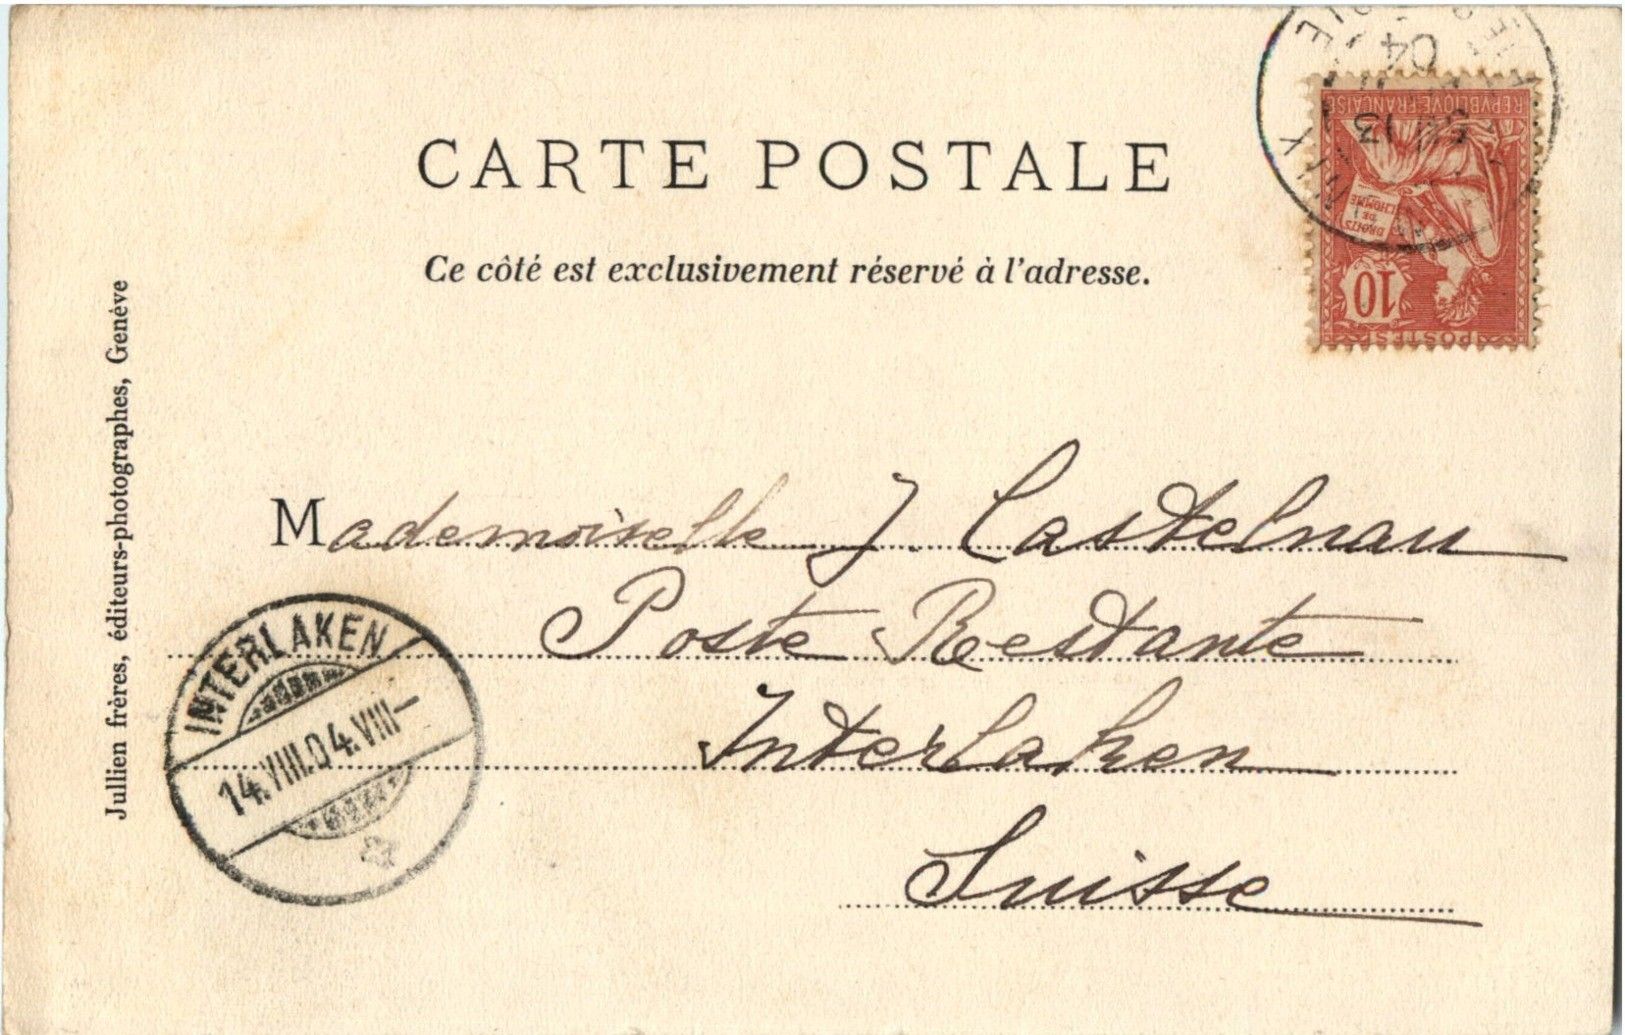 CARTE POSTALE
Ce côté est exclusivement réservé à l'adresse.
04
13
REPVBLIQVE FRANÇAISE
DROITS
DE
L'HOMME
10
POSTES
Jullien frères, éditeurs-photographes, Genève
Mademoiselle J. Castelnau
Poste Restante
Interlaken
Suisse
INTERLAKEN
14.VIII.04.VIII–